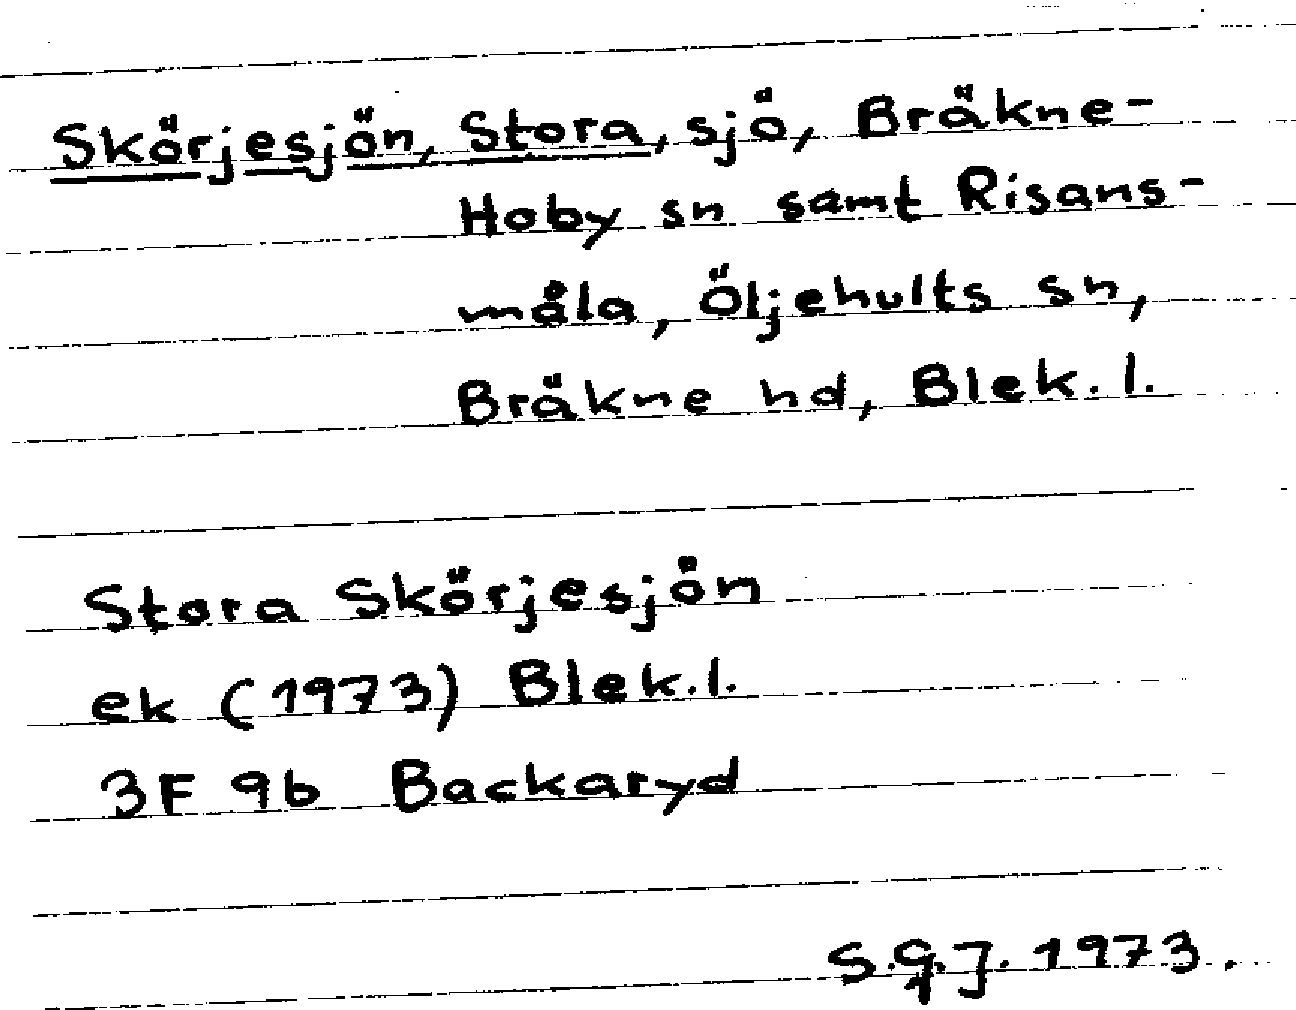 Skörjesjön, Stora, sjö, Bräkne-
Hoby sn samt Risans-
måla, Öljehults sn,
Bräkne hd, Blek. l.
Stora Skörjesjön
ek (1973) Blek. l.
3F 9b Backaryd
S.G.J. 1973.